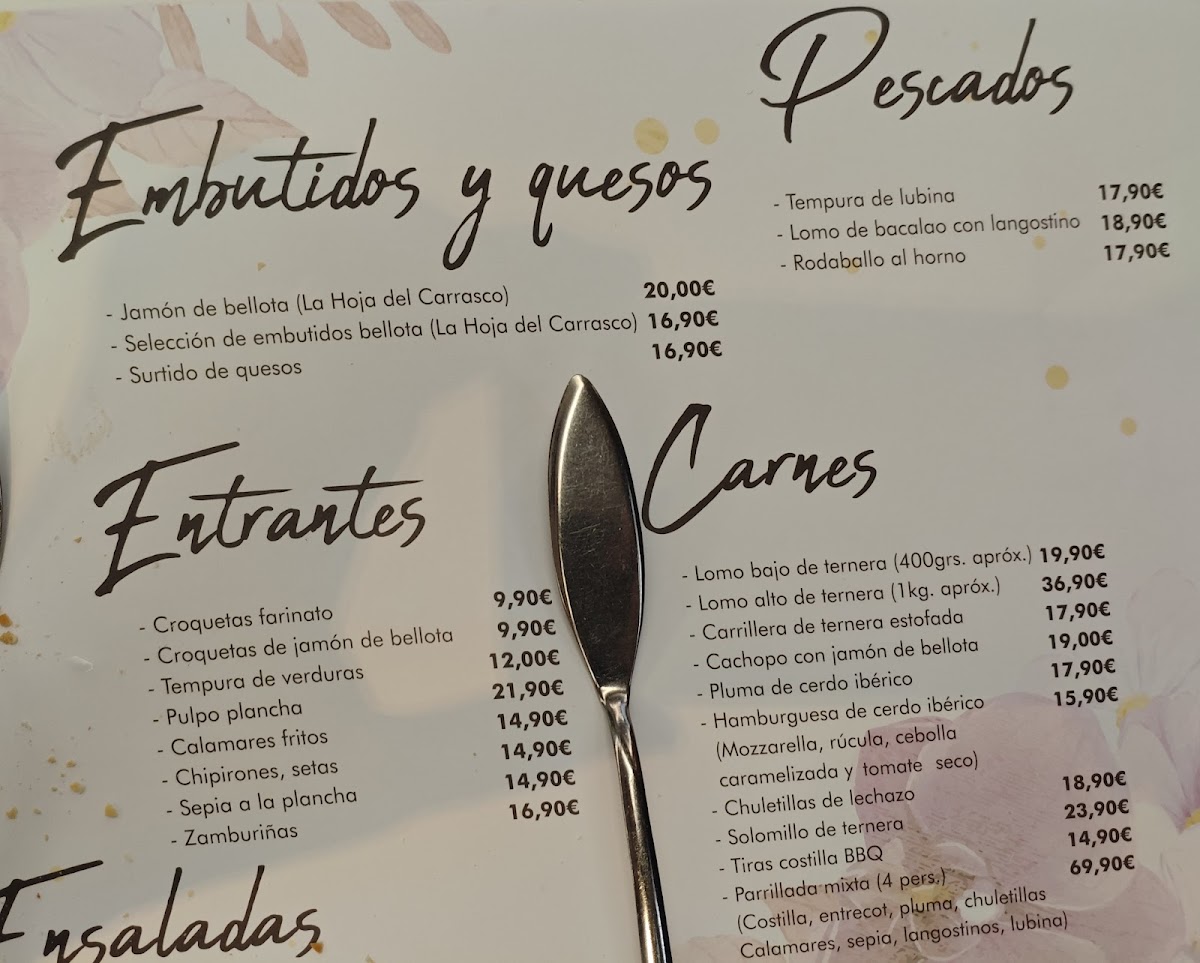 Embutidos y quesos
- Jamón de bellota (La Hoja del Carrasco) 20,00€
- Selección de embutidos bellota (La Hoja del Carrasco) 16,90€
- Surtido de quesos 16,90€
Pescados
- Tempura de lubina 17,90€
- Lomo de bacalao con langostino 18,90€
- Rodaballo al horno 17,90€
Entrantes
- Croquetas farinato 9,90€
- Croquetas de jamón de bellota 9,90€
- Tempura de verduras 12,00€
- Pulpo plancha 21,90€
- Calamares fritos 14,90€
- Chipirones, setas 14,90€
- Sepia a la plancha 14,90€
- Zamburiñas 16,90€
Carnes
- Lomo bajo de ternera (400grs. apróx.) 19,90€
- Lomo alto de ternera (1kg. apróx.) 36,90€
- Carrillera de ternera estofada 17,90€
- Cachopo con jamón de bellota 19,00€
- Pluma de cerdo ibérico 17,90€
- Hamburguesa de cerdo ibérico 15,90€
(Mozzarella, rúcula, cebolla
caramelizada y tomate seco)
- Chuletillas de lechazo 18,90€
- Solomillo de ternera 23,90€
- Tiras costilla BBQ 14,90€
- Parrillada mixta (4 pers.) 69,90€
(Costilla, entrecot, pluma, chuletillas
Calamares, sepia, langostinos, lubina)
Ensaladas